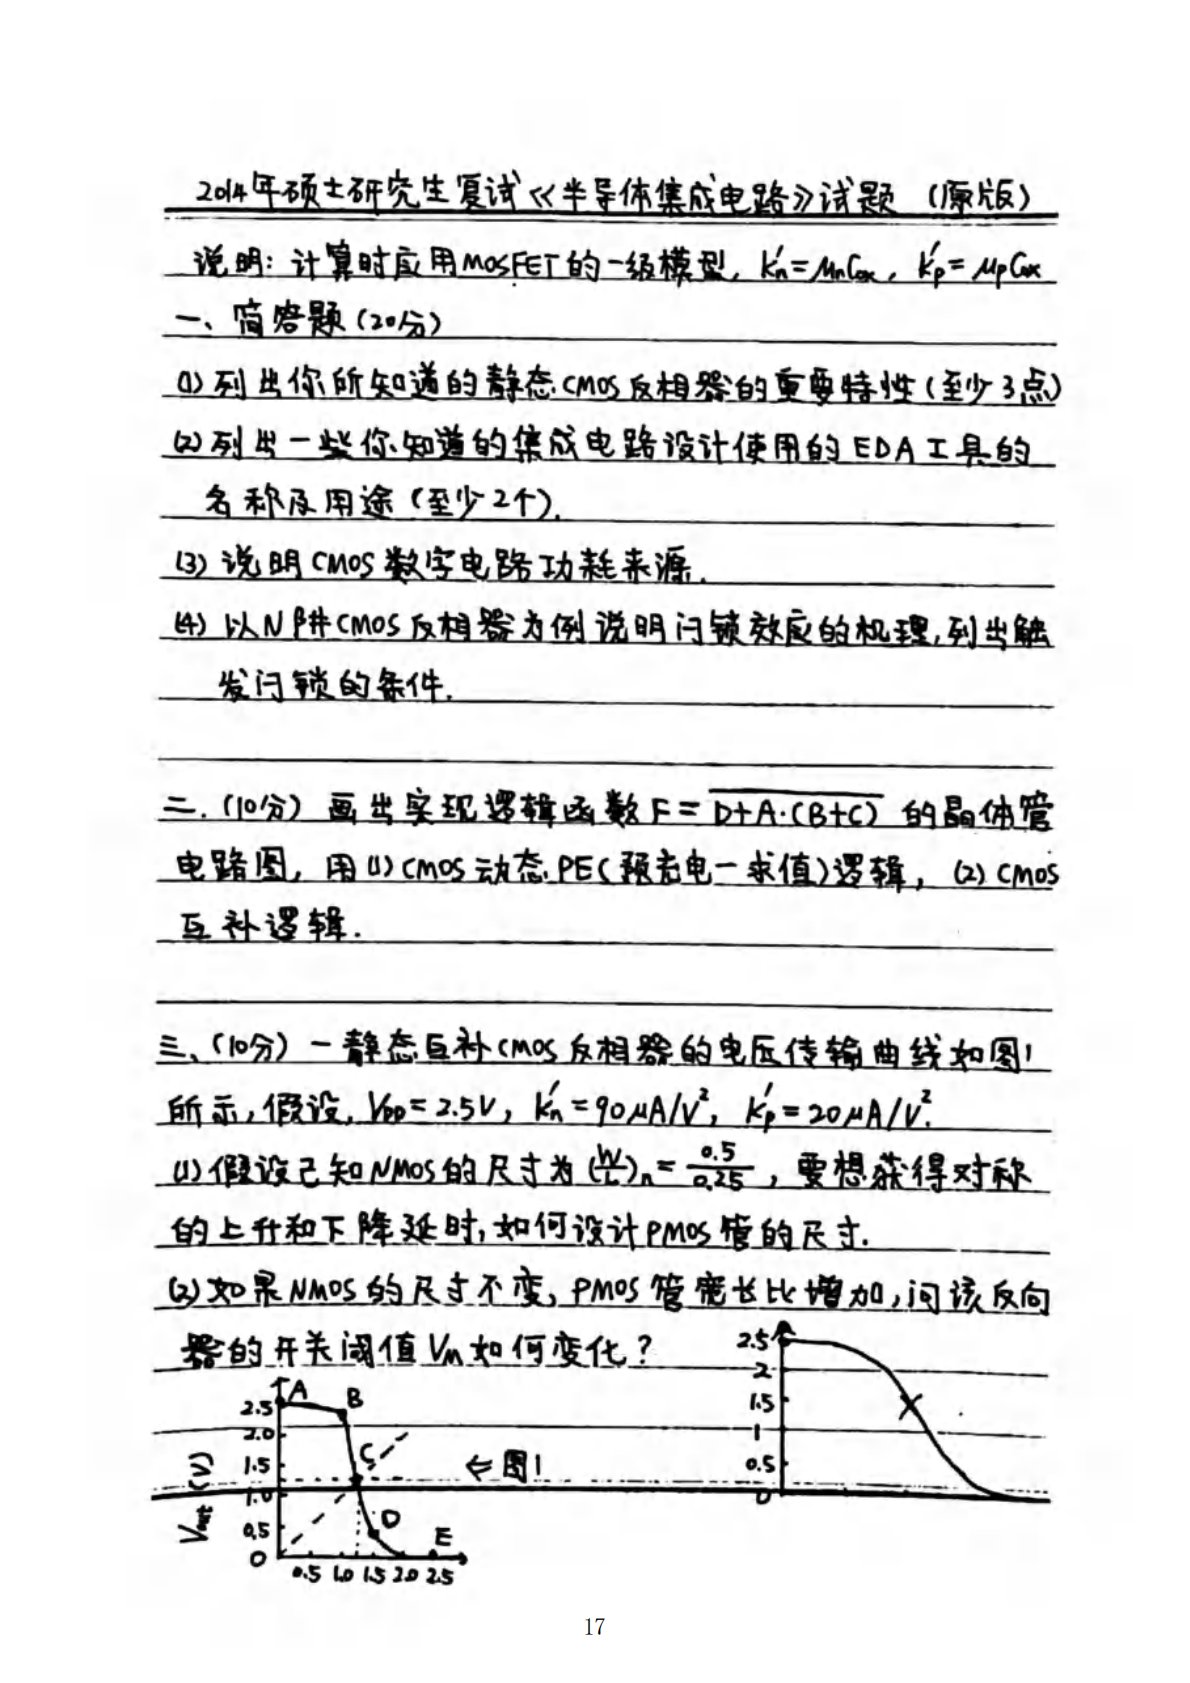 2014年硕士研究生复试《半导体集成电路》试题 (原版)
说明: 计算时应用MOSFET的一级模型, Kn'=μnCox, Kp'=μpCox
一、简答题(20分)
(1) 列出你所知道的静态CMOS反相器的重要特性(至少3点)
(2) 列出一些你知道的集成电路设计使用的EDA工具的
名称及用途(至少2个).
(3) 说明CMOS数字电路功耗来源.
(4) 以N阱CMOS反相器为例说明闩锁效应的机理,列出触
发闩锁的条件.
二.(10分) 画出实现逻辑函数 F=\overline{D+A·(B+C)} 的晶体管
电路图, 用(1)CMOS动态PE(预充电—求值)逻辑, (2) CMOS
互补逻辑.
三、(10分) 一静态互补CMOS反相器的电压传输曲线如图1
所示,假设, VDD=2.5V, Kn'=90μA/V², Kp'=20μA/V².
(1) 假设已知NMOS的尺寸为(W/L)n=0.5/0.25, 要想获得对称
的上升和下降延时,如何设计PMOS管的尺寸.
(2) 如果NMOS的尺寸不变, PMOS管宽长比增加,问该反向
器的开关阈值VM如何变化?
2.5
2
1.5
1
0.5
0
A
B
2.5
2.0
C
1.5
⇐ 图1
1.0
Vout (V)
D
0.5
E
0
0.5 1.0 1.5 2.0 2.5
17